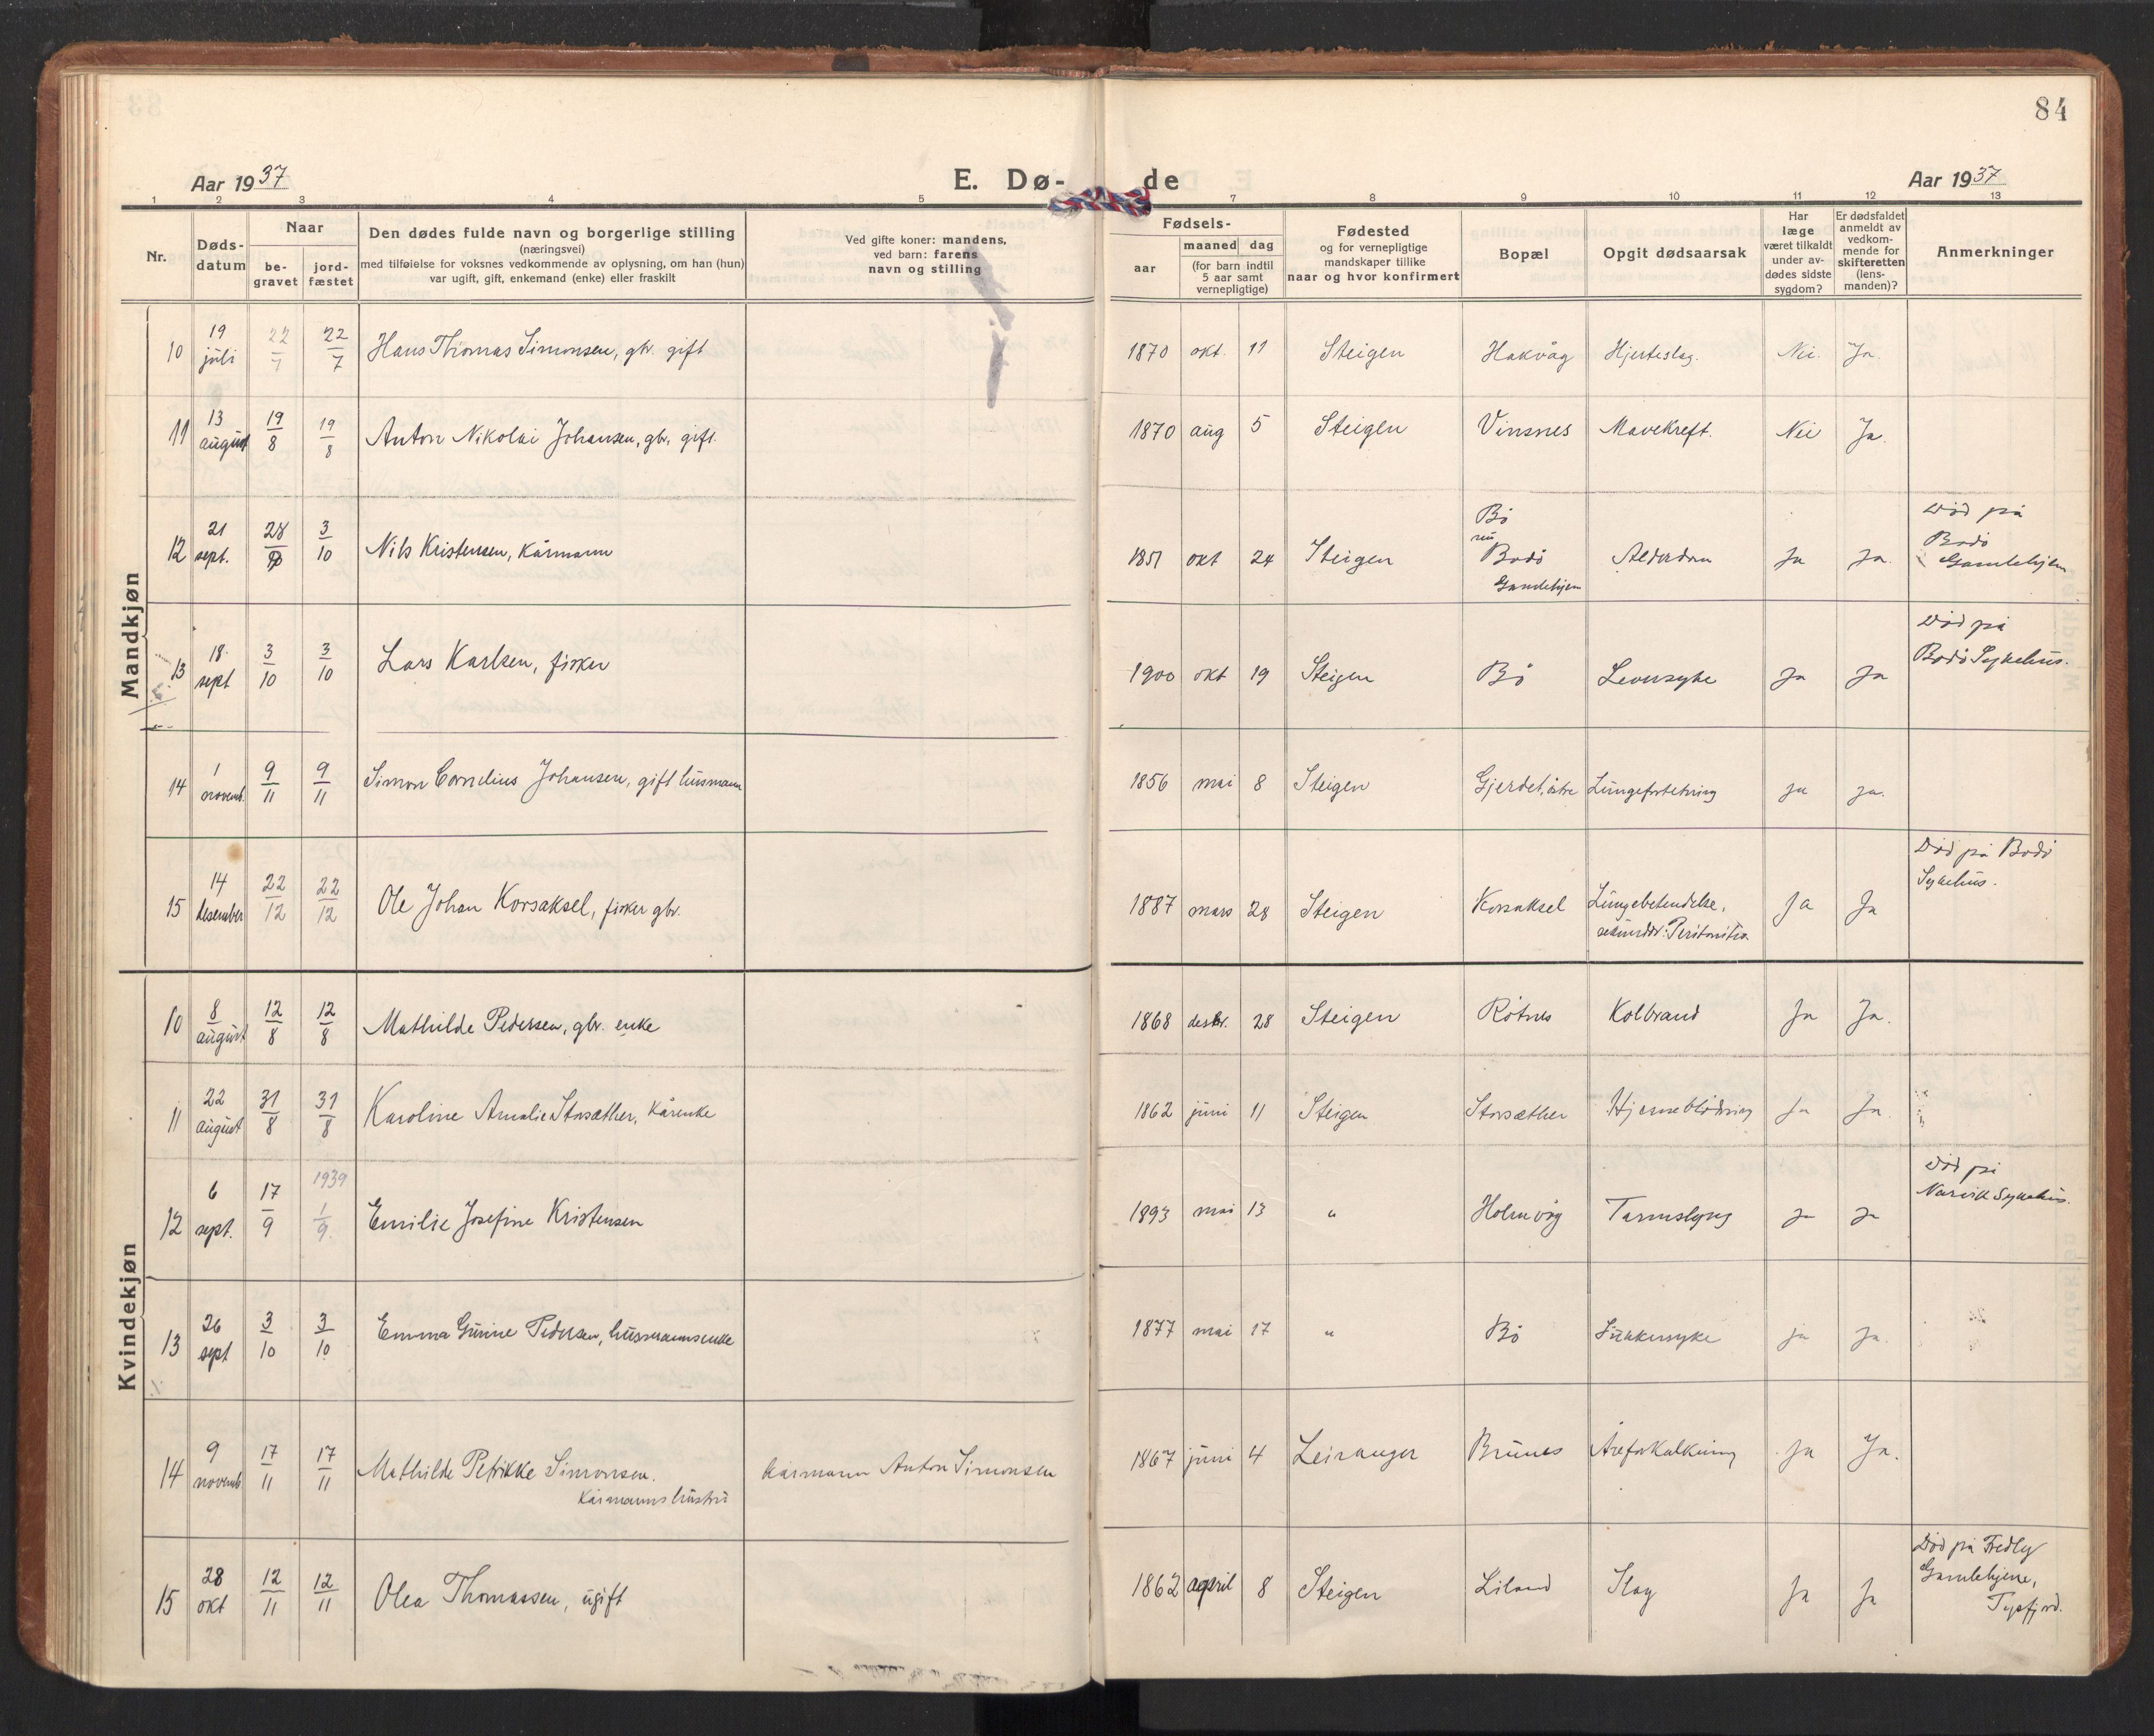 84
Aar 1937
E. Dø-
de
Aar 1937
1 2 3 4 5 7 8 9 10 11 12 13
Nr.
Døds-
datum
Naar
be-
gravet
jord-
fæstet
Den dødes fulde navn og borgerlige stilling
(næringsvei)
med tilføielse for voksnes vedkommende av oplysning, om han (hun)
var ugift, gift, enkemand (enke) eller fraskilt
Ved gifte koner: mandens,
ved barn: farens
navn og stilling
Fødsels-
aar
maaned dag
(for barn indtil
5 aar samt
vernepligtige)
Fødested
og for vernepligtige
mandskaper tillike
naar og hvor konfirmert
Bopæl
Opgit dødsaarsak
Har
læge
været tilkaldt
under av-
dødes sidste
sygdom?
Er dødsfaldet
anmeldt av
vedkom-
mende for
skifteretten
(lens-
manden)?
Anmerkninger
Mandkjøn
10 19 juli 22/7 22/7 Hans Thomas Simonsen, gbr. gift 1870 okt. 11 Steigen Hakvåg Hjerteslag. Nei. Ja.
11 13 august 19/8 19/8 Anton Nikolai Johansen, gbr, gift. 1870 aug 5 Steigen Vinsnes Mavekreft. Nei Ja.
12 21 sept. 28/9 3/10 Nils Kristensen, Kårmann 1851 okt 24 Steigen Bø
nu
Bodø
Gamlehjem
Alderdom Ja Ja. Død på
Bodø
Gamlehjem
13 18. sept 3/10 3/10 Lars Karlsen, fisker 1900 okt 19 Steigen Bø Leversyke Ja Ja Død på
Bodø Sykehus.
14 1 novemb. 9/11 9/11 Simon Cornelius Johansen, gift husmann 1856 mai 8 Steigen Gjerdet, østre Lungefortetning Ja Ja.
15 14 desember 22/12 22/12 Ole Johan Korsaksel, fisker gbr. 1887 mars 28 Steigen Korsaksel Lungebetendelse,
sekundær: Peritonitis
Ja Ja Død på Bodø
Sykehus.
Kvindekjøn
10 8 august 12/8 12/8 Mathilde Pedersen, gbr. enke 1868 desbr. 28 Steigen Røtnes Kolbrand Ja Ja.
11 22 august 31/8 31/8 Karoline Amalie Storsæther, Kårenke 1862 juni 11 Steigen Storsæther Hjerneblødning Ja Ja.
12 6 sept. 17/9 1939 1/9. Emilie Josefine Kristensen 1893 mai 13 " Holmvåg Tarmslyng Ja Ja Død på
Narvik Sykehus.
13 26 sept 3/10 3/10 Emma Gurine Pedersen, husmannsenke 1877 mai 17 " Bø Sukkersyke Ja Ja.
14 9 novemb 17/11 17/11 Mathilde Petrikke Simonsen.
Kårmanns hustru
Kårmann Anton Simonsen 1867 juni 4 Leiranger Brunes Åreforkalkning Ja Ja.
15 28 okt 12/11 12/11 Olea Thomassen, ugift 1862 april 8 Steigen Liland Slag Ja Ja Død på Fredly
Gamlehjem,
Tysfjord.